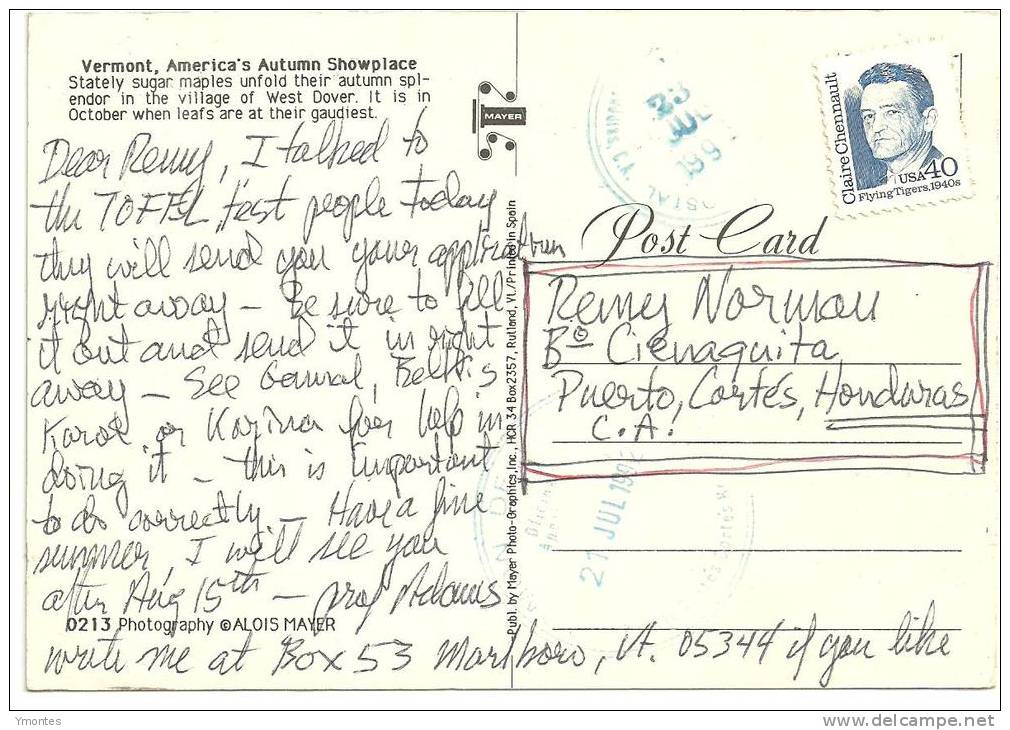 Vermont, America's Autumn Showplace
Stately sugar maples unfold their autumn spl-
endor in the village of West Dover. It is in
October when leafs are at their gaudiest.
MAYER
Dear Remy, I talked to
the TOFFL test people today
they will send you your application
right away — Be sure to fill
it out and send it in right
away — See Gamal, Belkis
Karol or Karina for help in
doing it — this is important
to do correctly — Have a fine
summer, I will see you
after Aug 15th — prof Adams
0213 Photography ©ALOIS MAYER
write me at Box 53 Marlboro, Vt. 05344 if you like
Publ. by Mayer Photo-Graphics, Inc., HCR 34 Box 2357, Rutland, Vt./Printed in Spain
23
199
Claire Chennault
USA 40
Flying Tigers, 1940s
Post Card
Remy Norman
Bo Cienaguita
Puerto, Cortés, Honduras
C.A.
21 JUL 199
Ymontes
delcampe.net